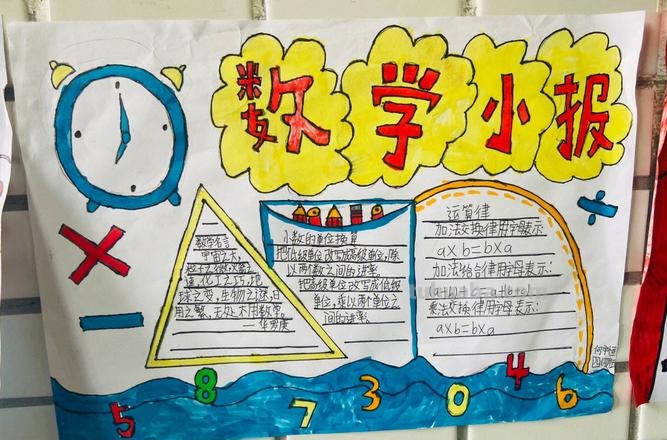 数学小报
数学名言
宇宙之大,
粒子之微,火箭之
速,化工之巧,地
球之变,生物之谜,日
用之繁,无处不用数学。
——华罗庚
小数的单位换算
把低级单位改写成高级单位,除
以两个数之间的进率
把高级单位改写成低级
单位,乘以两个单位之
间的进率。
运算律
加法交换律用字母表示
a×b=b×a
加法结合律用字母表示:
(a+b)+c=a+(b+c)
乘法交换律用字母表示:
a×b=b×a
5 8 7 3 0 4 6